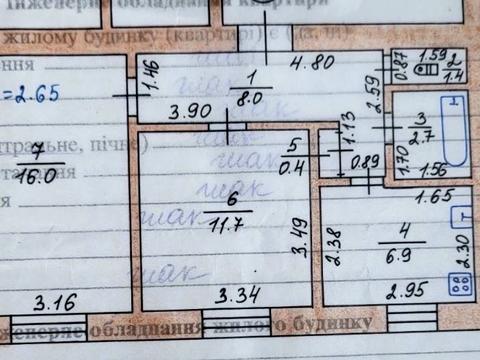 Інженерне обладнання квартири
жилому будинку (квартирі) є (
4.80
0.87
1.59
2
1.4
1.46
1
8.0
=2.65
3.90
2.59
3
2.7
1.13
5
0.4
нтральне, пічне)
7
16.0
0.89
1.70
1.56
6
11.7
1.65
3.49
2.38
4
6.9
2.30
3.16
3.34
2.95
женерне обладнання жилого будинку